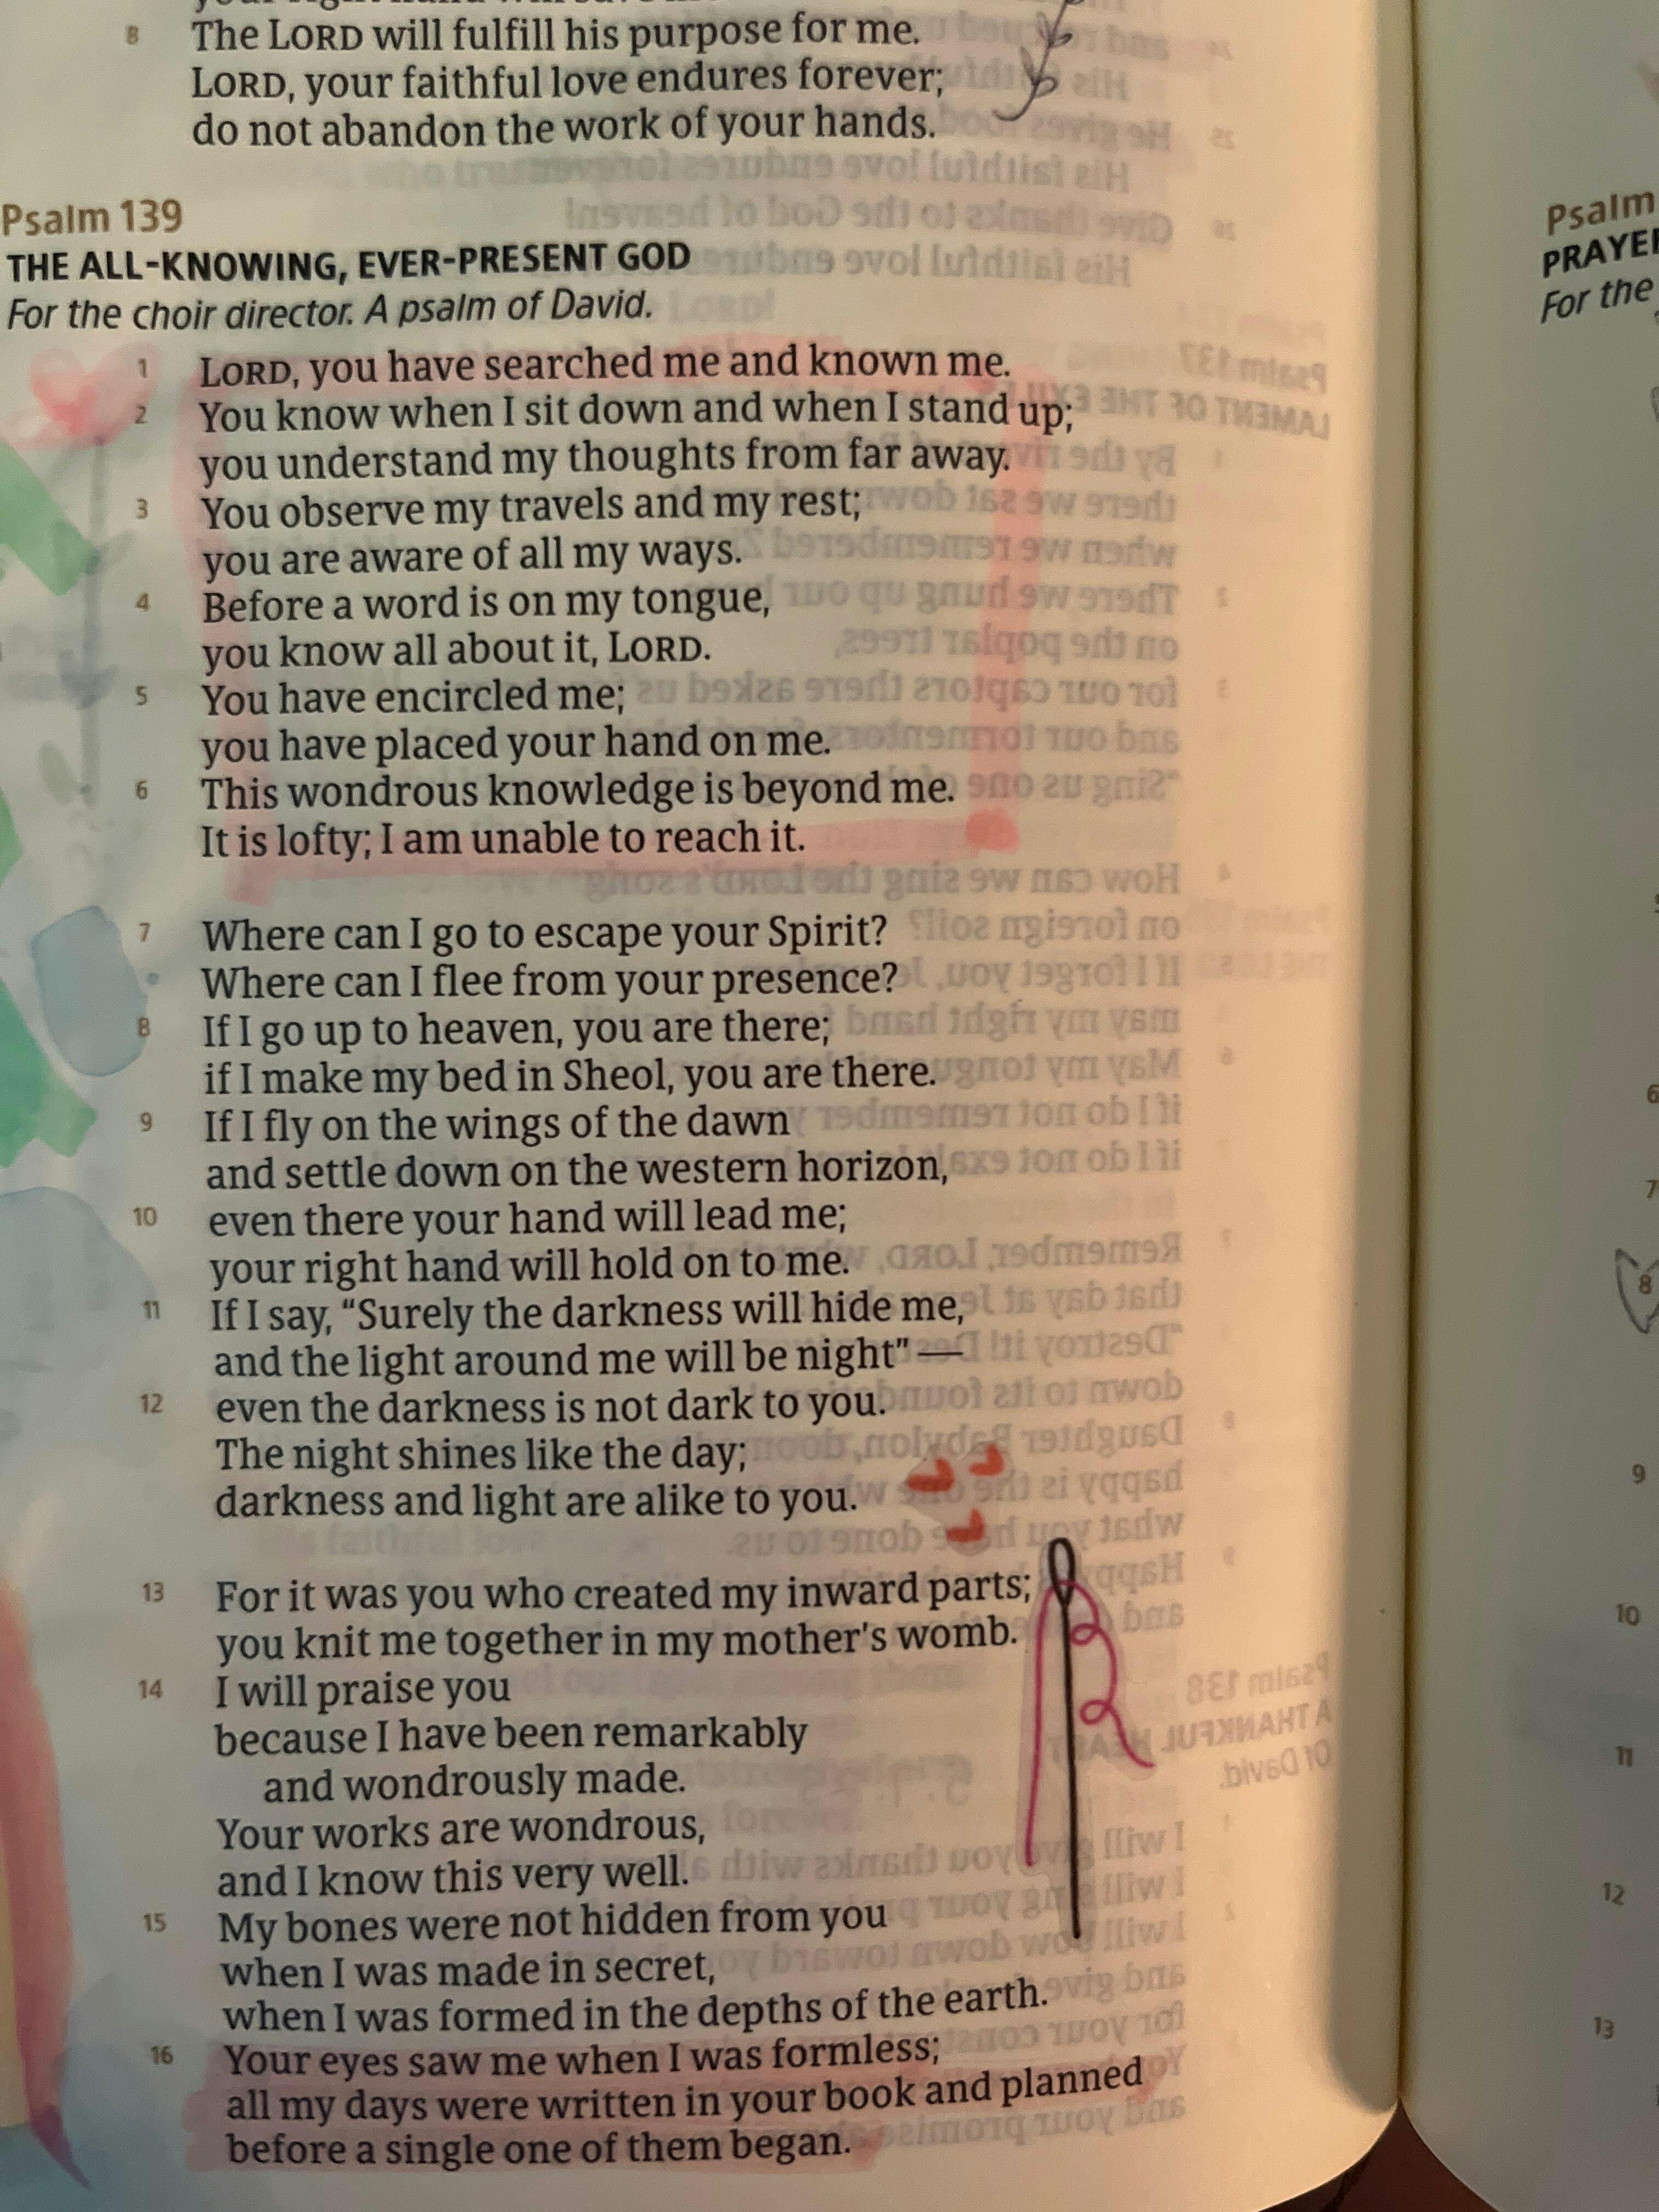 8 The LORD will fulfill his purpose for me.
LORD, your faithful love endures forever;
do not abandon the work of your hands.
Psalm 139
THE ALL-KNOWING, EVER-PRESENT GOD
For the choir director. A psalm of David.
1 LORD, you have searched me and known me.
2 You know when I sit down and when I stand up;
you understand my thoughts from far away.
3 You observe my travels and my rest;
you are aware of all my ways.
4 Before a word is on my tongue,
you know all about it, LORD.
5 You have encircled me;
you have placed your hand on me.
6 This wondrous knowledge is beyond me.
It is lofty; I am unable to reach it.
7 Where can I go to escape your Spirit?
Where can I flee from your presence?
8 If I go up to heaven, you are there;
if I make my bed in Sheol, you are there.
9 If I fly on the wings of the dawn
and settle down on the western horizon,
10 even there your hand will lead me;
your right hand will hold on to me.
11 If I say, “Surely the darkness will hide me,
and the light around me will be night” —
12 even the darkness is not dark to you.
The night shines like the day;
darkness and light are alike to you.
13 For it was you who created my inward parts;
you knit me together in my mother's womb.
14 I will praise you
because I have been remarkably
and wondrously made.
Your works are wondrous,
and I know this very well.
15 My bones were not hidden from you
when I was made in secret,
when I was formed in the depths of the earth.
16 Your eyes saw me when I was formless;
all my days were written in your book and planned
before a single one of them began.
Psalm
PRAYE
For the
6
7
8
9
10
11
12
13